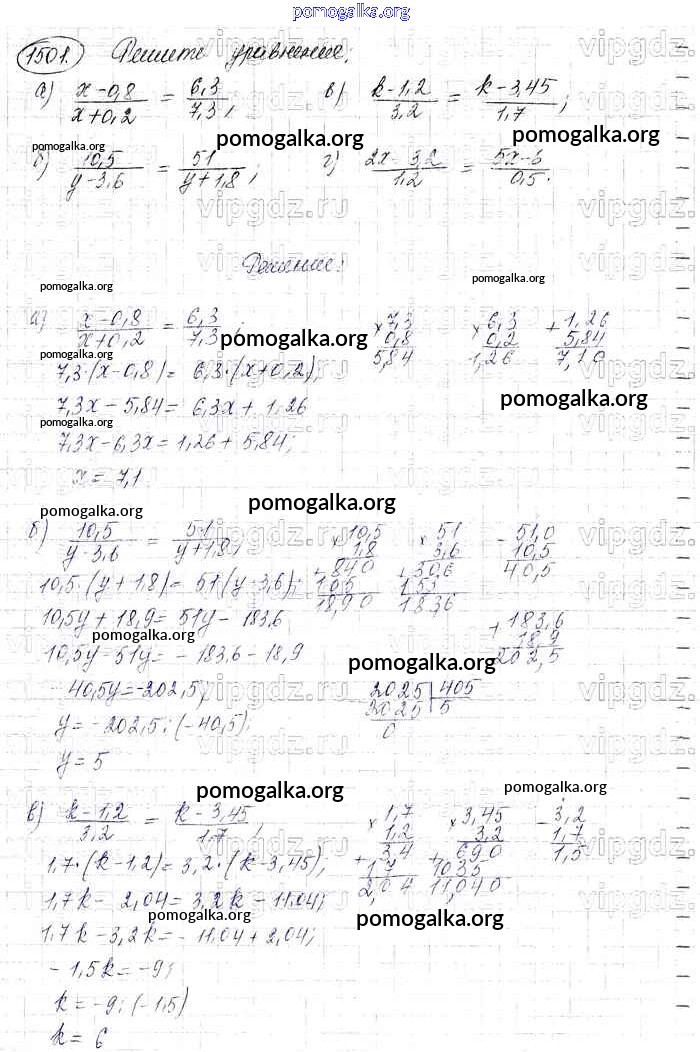 pomogalka.org
1501. Решите уравнение:
а) x-0,8/x+0,2 = 6,3/7,3; в) k-1,2/3,2 = k-3,45/1,7;
pomogalka.org pomogalka.org pomogalka.org
б) 10,5/y-3,6 = 51/y+1,8; г) 2x-3,2/1,2 = 5x-6/0,5.
vipgdz.ru vipgdz.ru
Решение:
pomogalka.org pomogalka.org
а) x-0,8/x+0,2 = 6,3/7,3; ×7,3 ×6,3 +1,26
pomogalka.org 0,8 0,2 5,84
pomogalka.org 5,84 1,26 7,10
7,3·(x-0,8)= 6,3·(x+0,2);
pomogalka.org
7,3x-5,84= 6,3x+1,26
pomogalka.org
7,3x-6,3x=1,26+5,84;
x= 7,1
pomogalka.org pomogalka.org
б) 10,5/y-3,6 = 51/y+1,8; ×10,5 ×51 -51,0
1,8 3,6 10,5
+840 +306 40,5
10,5·(y+1,8)= 51(y-3,6); 105 153
18,90 183,6
10,5y+18,9= 51y-183,6 +183,6
pomogalka.org 18,9
10,5y-51y=-183,6-18,9 202,5
pomogalka.org
-40,5y=-202,5; 2025 405
y=-202,5:(-40,5); 2025 5
0
y= 5
pomogalka.org pomogalka.org
в) k-1,2/3,2 = k-3,45/1,7; ×1,7 ×3,45 -3,2
1,2 3,2 1,7
+34 +690 1,5
1,7·(k-1,2)=3,2·(k-3,45); 17 1035
2,04 11,040
1,7k-2,04=3,2k-11,04;
pomogalka.org pomogalka.org
1,7k-3,2k=-11,04+2,04;
-1,5k=-9;
k=-9:(-1,5)
k= 6